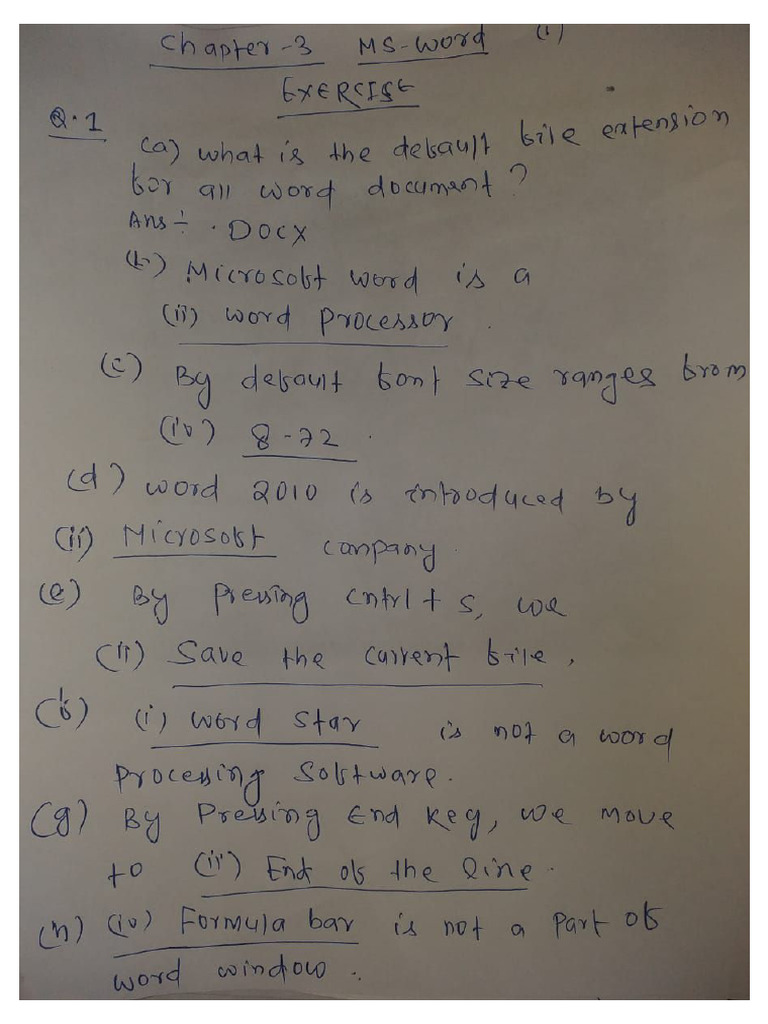 Chapter-3 MS-Word (1)
EXERCISE
Q.1
(a) what is the default file extension
for all word document?
Ans :- .DOCX
(b) Microsoft word is a
(ii) word processor.
(c) By default font size ranges from
(iv) 8-72.
(d) word 2010 is introduced by
(ii) Microsoft company.
(e) By pressing cntrl + s, we
(ii) Save the current file.
(f) (i) word star is not a word
processing software.
(g) By Pressing End key, we move
to (ii) End of the line.
(h) (iv) Formula bar is not a part of
word window.